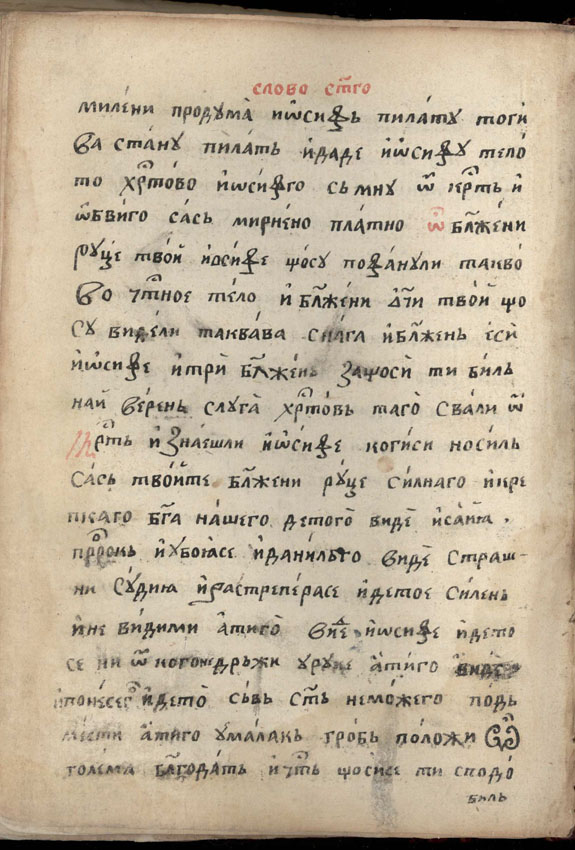 слово ст҃го
милени продума̀ иѡ҆сифь пила́ту тоги
ва ста́ну пила́ть и҆даде иѡ҆сифу тело̀
то хрⷭ҇тово иѡ҆сифго сьмну ѿ крⷭ҇ть и҆
ѡ҆бвиго сась мирнено платно ѽ бл҃же́ни
руце твои҆ иѡсифе щосу пофанули такво
во чⷭ҇тное тело и҆ бл҃же́ни ѻчи твои҆ що
су виде́ли таквава снага̀ и҆бл҃же́нь е҆сѝ
иѡ҆сифе и҆трѝ бл҃же́нь защосѝ ти биль
най ве́рень слуга̀ хрⷭ҇товь таго̀ свали ѿ
крⷭ҇ть и҆ зна́ешли иѡ҆сифе когиси носиль
сась твои҆те бл҃же́ни ру́це силнаго и҆кре
пкаго бг҃а на́шего детого̀ видѐ и҆са́иꙗ
прⷪ҇рокь и҆ убоꙗ́се и҆дани́льго видѐ страш-
ни су́диꙗ и҆растрепе́расе и҆детое си́лень
и҆не ви́дими а҆тиго̀ виⷣе иѡ҆сифе и҆дето
се ни ѿ когонедрьжи уруце а҆тиго виде
и҆поне́сего и҆дето̀ сьвь сⷡ҇ть немо́жего подь
мести а҆тиго ума́лакь гро́бь поло́жи ѽ
голе́ма блг҃ода́ть и҆ чⷭ҇ть щосисе ти сподо́
биль